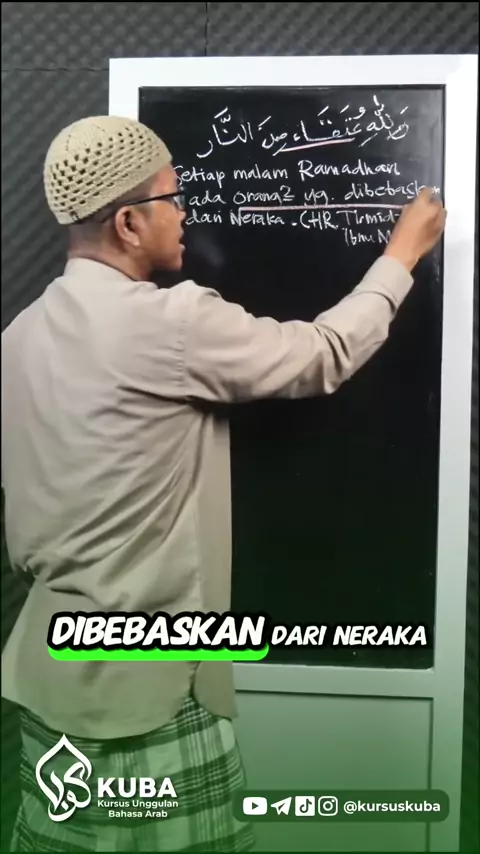 وَلِلَّهِ عُتَقَاءُ مِنَ النَّارِ
Setiap malam Ramadhan
ada orang2 yg. dibebaskan
dari Neraka. (HR. Tirmidz
Ibnu M
DIBEBASKAN DARI NERAKA
KUBA
Kursus Unggulan
Bahasa Arab
@kursuskuba